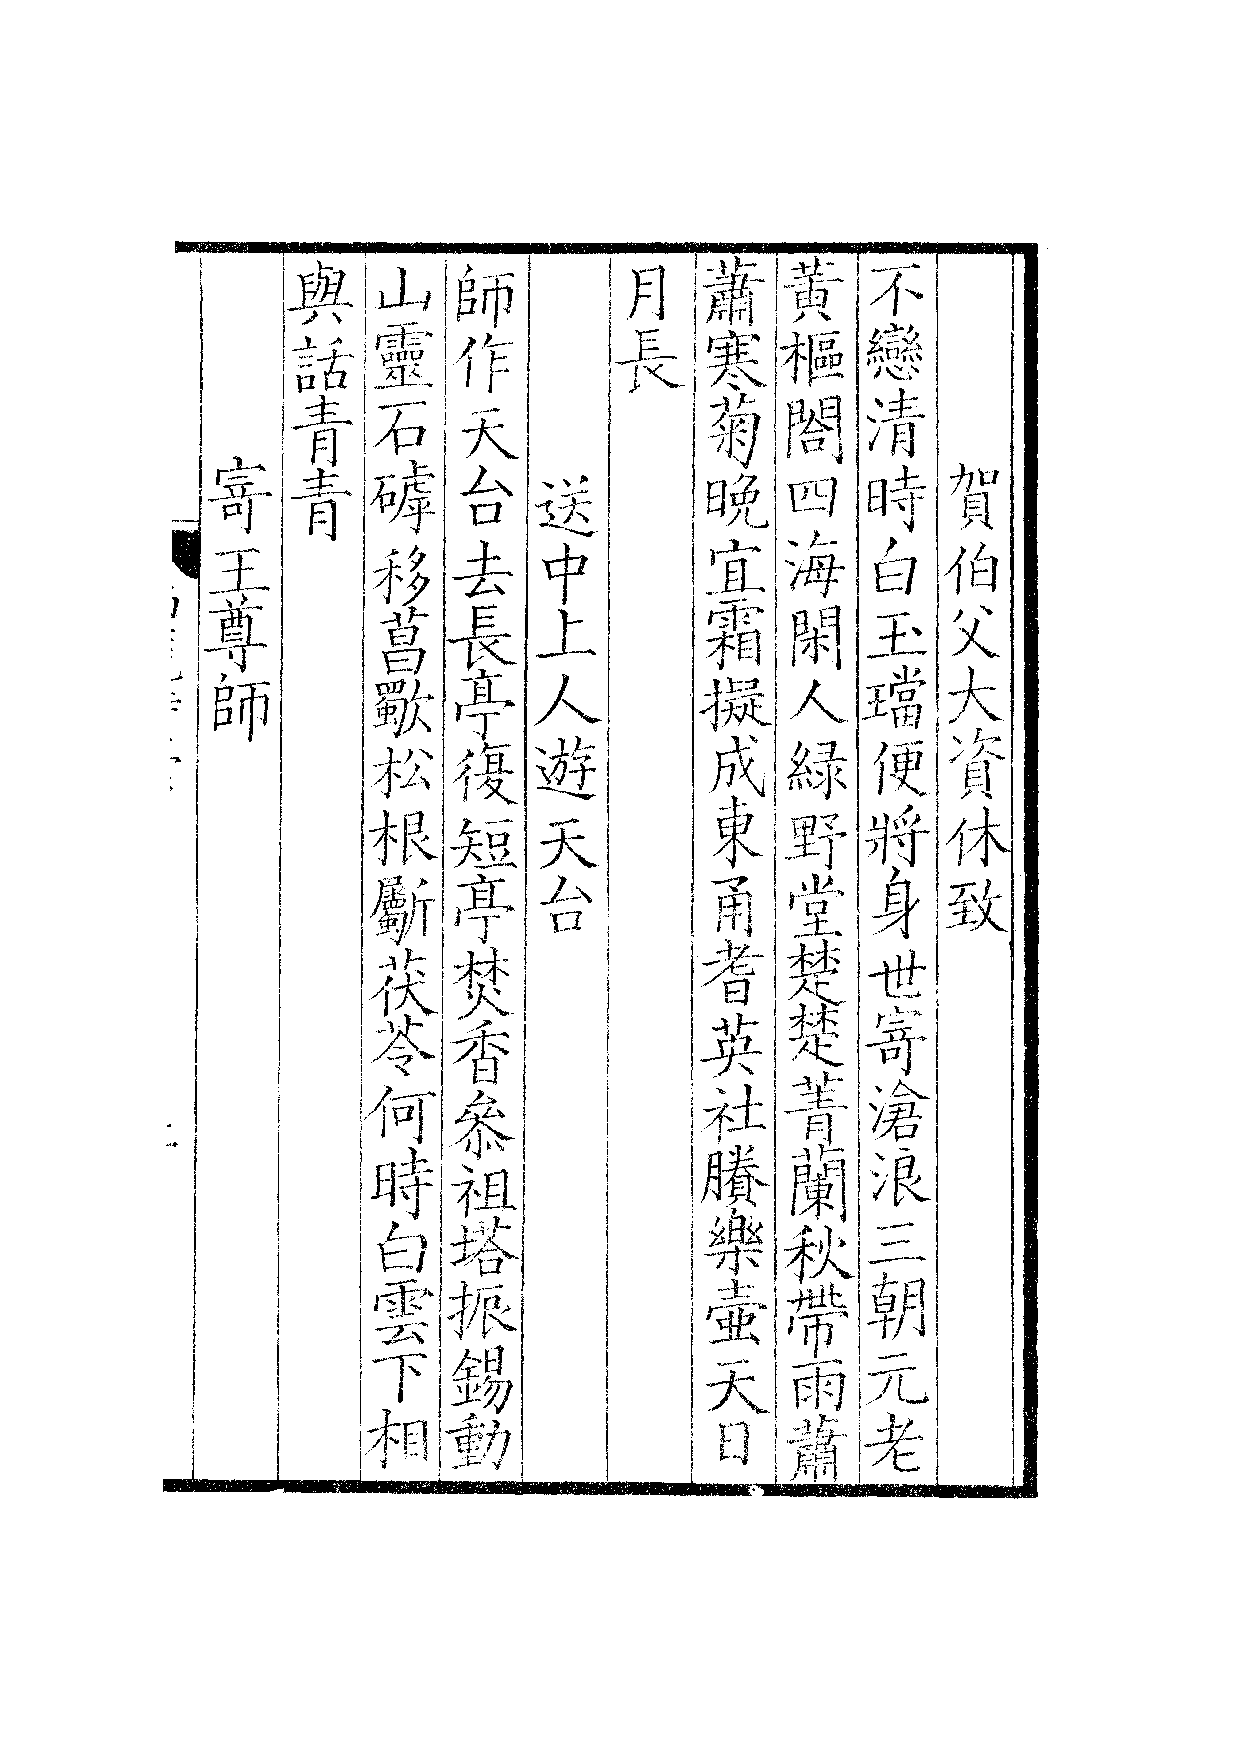 賀伯父大資休致
不戀清時白玉璫便將身世寄滄浪三朝元老
黄樞閤四海閑人緑野堂楚楚菁蘭秋帶雨蕭
蕭寒菊晩宜霜擬成東甬耆英社賸樂壷天日
月長
送中上人遊天台
師作天台去長亭復短亭焚香叅祖塔振錫動
山靈石罅移菖歜松根斸茯苓何時白雲下相
與話青青
寄王尊師